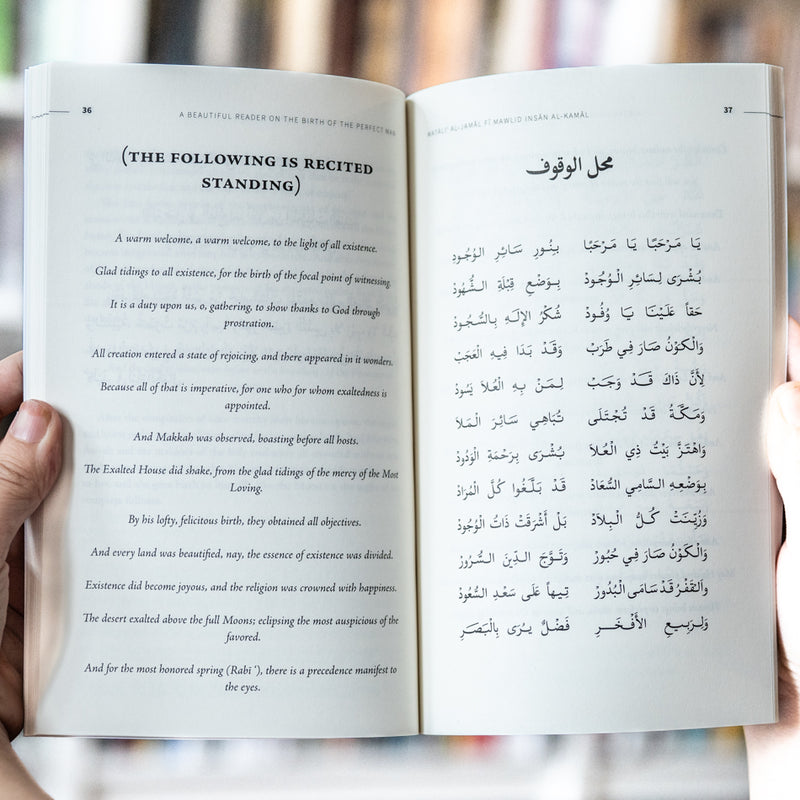 36
A BEAUTIFUL READER ON THE BIRTH OF THE PERFECT MAN
(THE FOLLOWING IS RECITED
STANDING)
A warm welcome, a warm welcome, to the light of all existence.
Glad tidings to all existence, for the birth of the focal point of witnessing.
It is a duty upon us, o, gathering, to show thanks to God through
prostration.
All creation entered a state of rejoicing, and there appeared in it wonders.
Because all of that is imperative, for one who for whom exaltedness is
appointed.
And Makkah was observed, boasting before all hosts.
The Exalted House did shake, from the glad tidings of the mercy of the Most
Loving.
By his lofty, felicitous birth, they obtained all objectives.
And every land was beautified, nay, the essence of existence was divided.
Existence did become joyous, and the religion was crowned with happiness.
The desert exalted above the full Moons; eclipsing the most auspicious of the
favored.
And for the most honored spring (Rabī ʿ), there is a precedence manifest to
the eyes.
MATĀLIʿ AL-JAMĀL FĪ MAWLID INSĀN AL-KAMĀL
37
محل الوقوف
يَا مَرْحَبًا يَا مَرْحَبًا بِنُورِ سَائِرِ الوُجُودِ
بُشْرَى لِسَائِرِ الْوُجُودْ بِوَضْعِ قِبْلَةِ الشُّهُودْ
حَقاً عَلَيْنَا يَا وُفُودْ شُكْرُ الإِلَهِ بِالسُّجُودْ
وَالْكَوْنُ صَارَ فِي طَرَبْ وَقَدْ بَدَا فِيهِ الْعَجَبْ
لِأَنَّ ذَاكَ قَدْ وَجَبْ لِمَنْ بِهِ الْعُلَا يَسُودْ
وَمَكَّةُ قَدْ تُجْتَلَى تُبَاهِي سَائِرَ الْمَلَا
وَاهْتَزَّ بَيْتُ ذِي الْعُلَا بُشْرَى بِرَحْمَةِ الْوَدُودْ
بِوَضْعِهِ السَّامِي السُّعَادْ قَدْ بَلَغُوا كُلَّ الْمُرَادْ
وَزُيِّنَتْ كُلُّ الْبِلَادْ بَلْ أَشْرَقَتْ ذَاتُ الْوُجُودْ
وَالْكَوْنُ صَارَ فِي حُبُورْ وَتَوَّجَ الدِّينَ السُّرُورْ
وَالْقَفْرُ قَدْ سَامَى الْبُدُورْ تِيهاً عَلَى سَعْدِ السُّعُودْ
وَلِرَبِيعِ الأَفْخَرِ فَضْلٌ يُرَى بِالْبَصَرِ